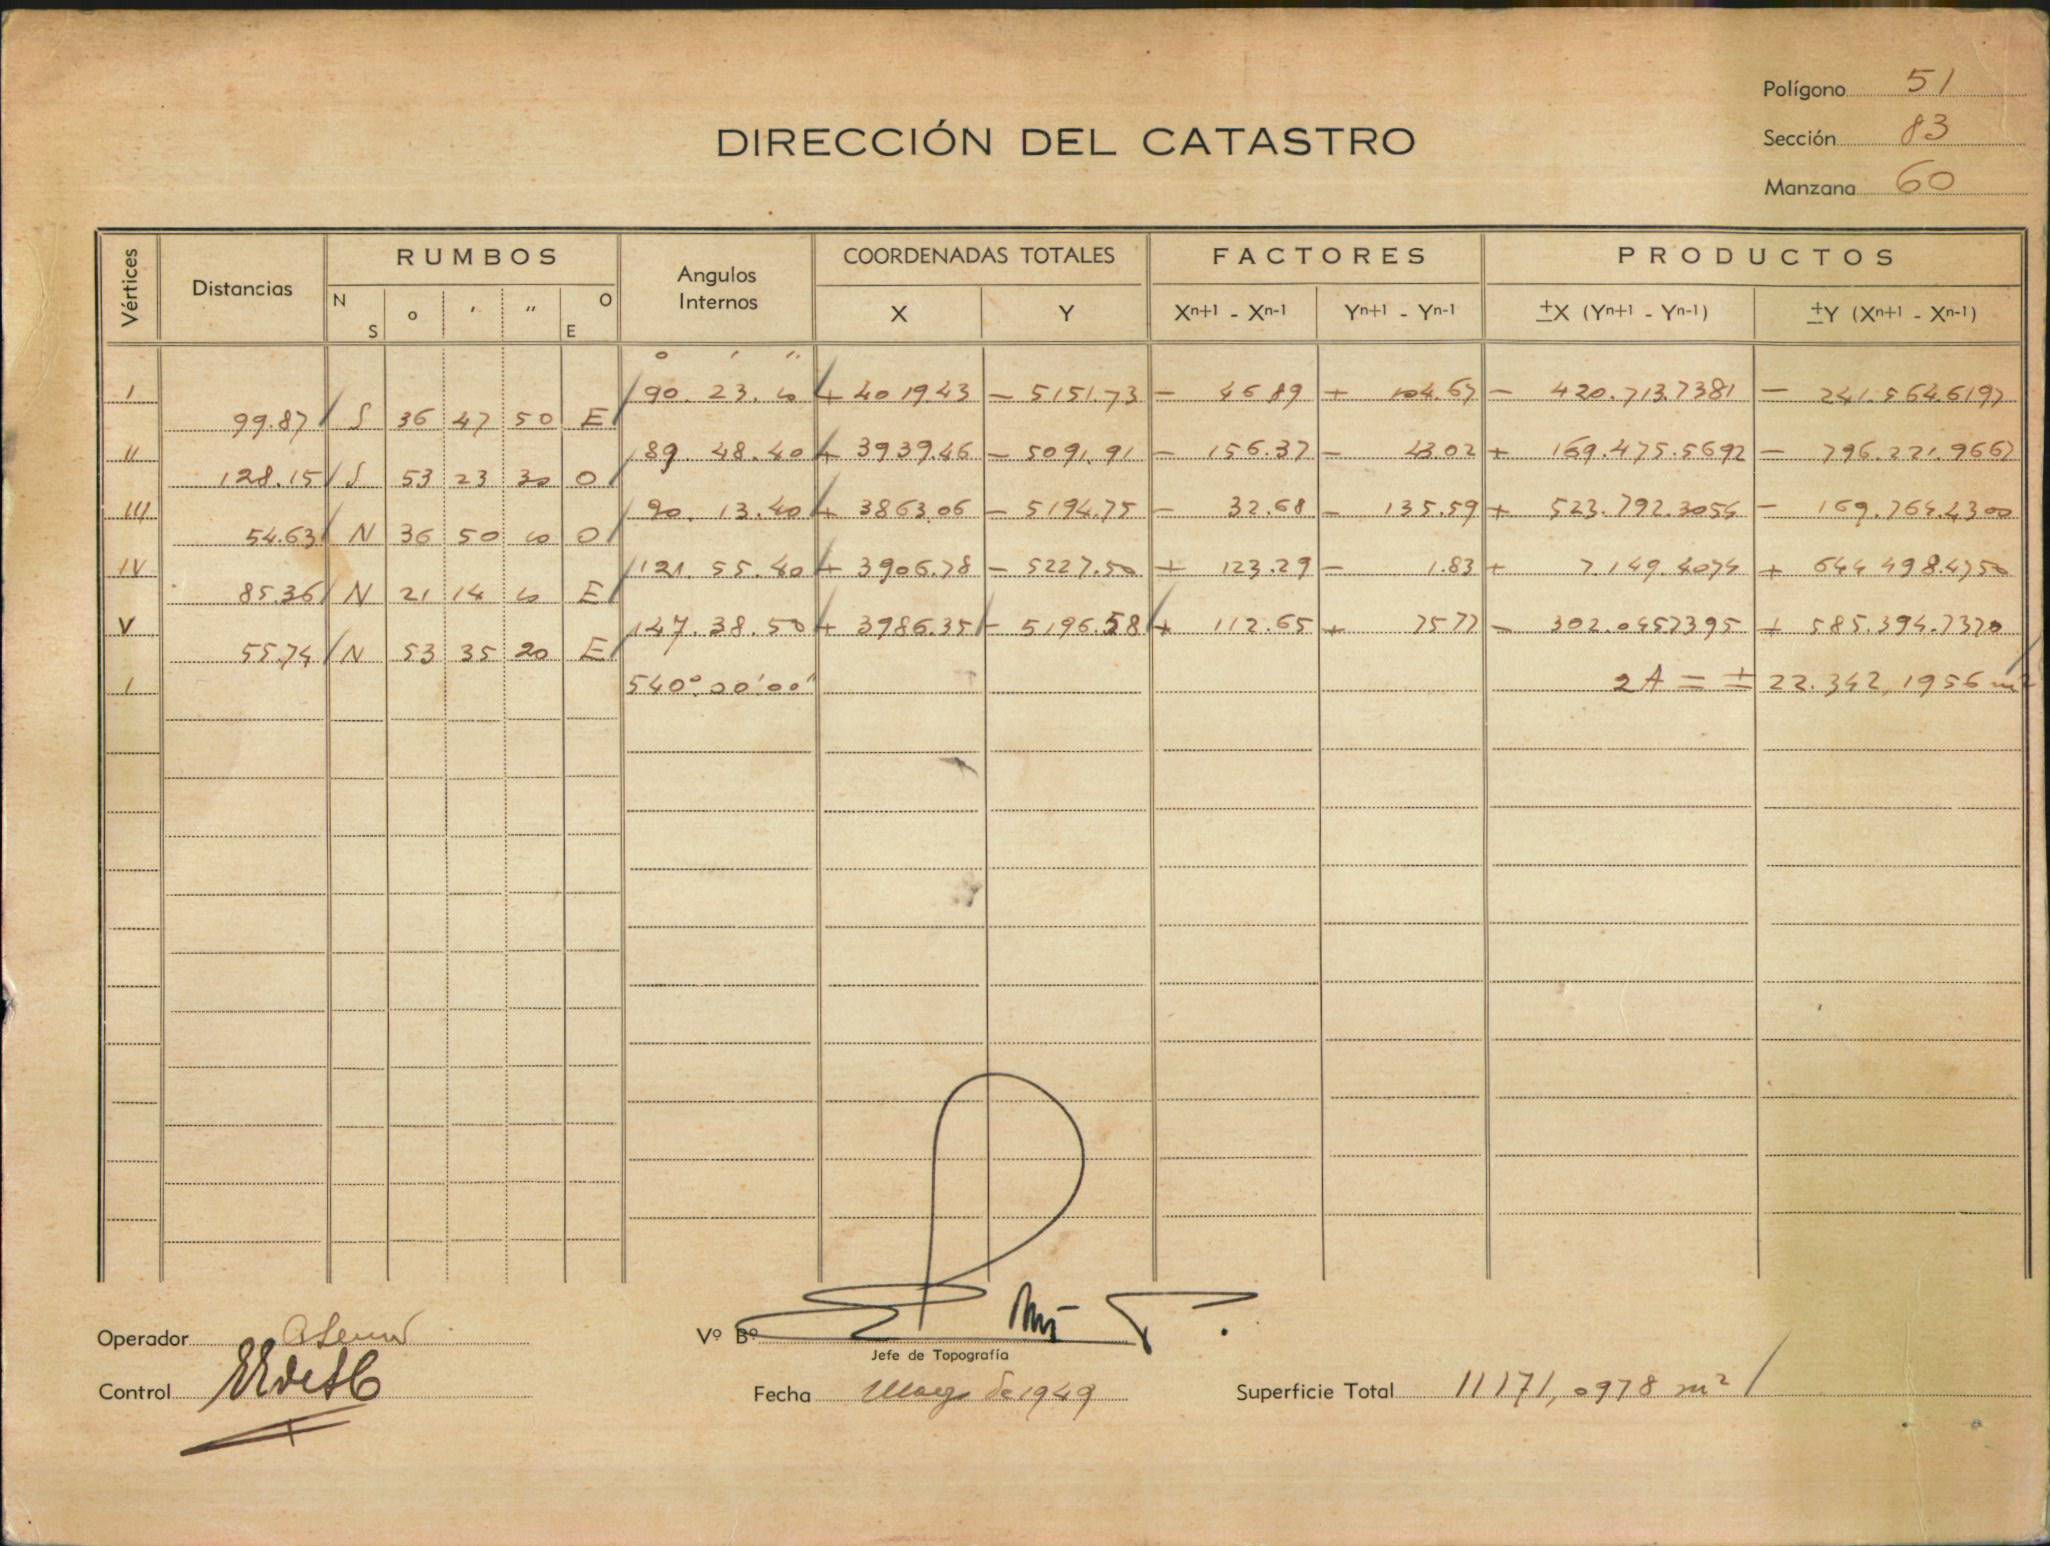 Polígono 51
DIRECCIÓN DEL CATASTRO
Sección 83
Manzana 60
Vértices Distancias RUMBOS Angulos Internos COORDENADAS TOTALES FACTORES PRODUCTOS
N S ° ' " O E X Y Xn+1 - Xn-1 Yn+1 - Yn-1 ±X (Yn+1 - Yn-1) ±Y (Xn+1 - Xn-1)
° ' "
I 90. 23. 10 + 4019.43 - 5151.73 - 46.89 + 104.67 - 420.713.7381 - 241.564.6197
99.87 S 36 47 50 E
II 89. 48. 40 + 3939.46 - 5091.91 - 156.37 - 43.02 + 169.475.5692 - 796.221.9667
128.15 S 53 23 30 O
III 90. 13. 40 + 3863.06 - 5194.75 - 32.68 - 135.59 + 523.792.3054 - 169.764.4300
54.63 N 36 50 10 O
IV 121. 55. 40 + 3906.78 - 5227.50 + 123.29 - 1.83 + 7.149.4074 + 644.498.4750
85.36 N 21 14 10 E
V 147. 38. 50 + 3986.35 - 5196.58 + 112.65 + 75.77 - 302.0457395 + 585.394.7370
55.74 N 53 35 20 E
I 540°.00'00" 2A = ± 22.342,1956 m²
Operador
Vº Bº
Jefe de Topografía
Control
Fecha Mayo de 1949
Superficie Total 11171,0978 m²